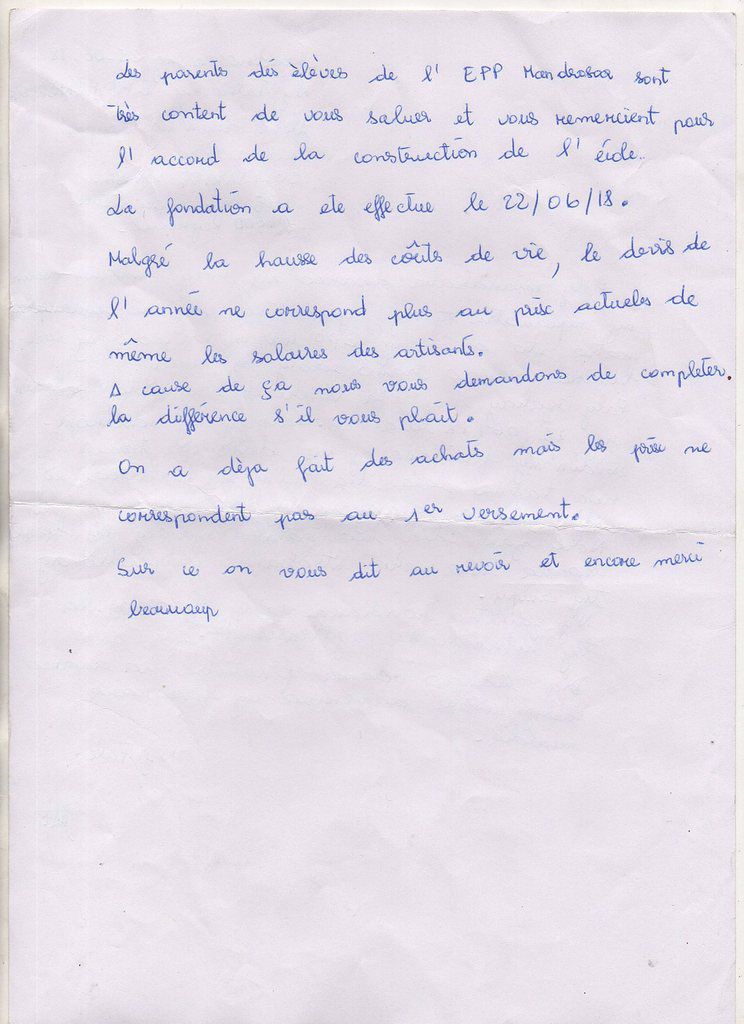 Les parents dés élèves de l' EPP Mandrosoa sont
Très content de vous saluer et vous remercient pour
l' accord de la construction de l' école.
La fondation a ete effectue le 22/06/18.
Malgré la hausse des coûts de vie, le devis de
l' année ne correspond plus au prix actueles de
même les salaires des artisants.
A cause de ça nous vous demandons de completer.
la différence s'il vous plaît.
On a dèja fait des achats mais les prix ne
correspondent pas au 1er versement.
Sur ce on vous dit au revoir et encore merci
beaucoup